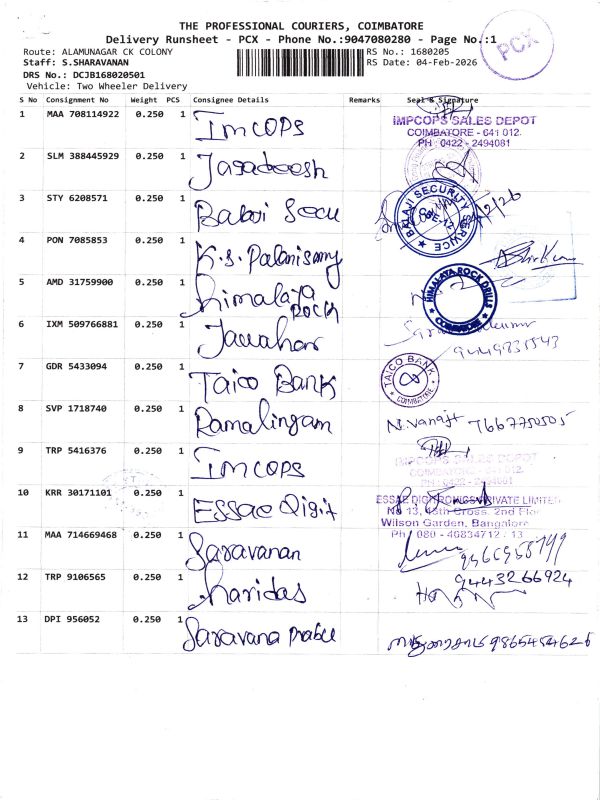 THE PROFESSIONAL COURIERS, COIMBATORE
Delivery Runsheet - PCX - Phone No.:9047080280 - Page No.:1
PCX
Route: ALAMUNAGAR CK COLONY
RS No.: 1680205
Staff: S.SHARAVANAN
RS Date: 04-Feb-2026
DRS No.: DCJB168020501
Vehicle: Two Wheeler Delivery
S No Consignment No Weight PCS Consignee Details Remarks Seal & Signature
1 MAA 708114922 0.250 1 Imcops
IMPCOPS SALES DEPOT
COIMBATORE - 641 012.
PH : 0422 - 2494081
2 SLM 388445929 0.250 1 Jagadeesh
3 STY 6208571 0.250 1 Balaji Secu
BALAJI SECURITY SERVICE
CBE-12
4 PON 7085853 0.250 1 K.S. Palanisamy
5 AMD 31759900 0.250 1 himalaya Rock
HIMALAYA ROCK DRILLS
COIMBATORE
6 IXM 509766881 0.250 1 Jawahar
7 GDR 5433094 0.250 1 Taico Bank
TAICO BANK
COIMBATORE
8 SVP 1718740 0.250 1 Ramalingam
7667750505
9 TRP 5416376 0.250 1 Imcops
IMPCOPS SALES DEPOT
COIMBATORE - 641 012.
PH : 0422 - 2494081
10 KRR 30171101 0.250 1 Essae Digit
ESSAE DIGITRONICS PRIVATE LIMITED
No 13, 13th Cross, 2nd Floor
Wilson Garden, Bangalore
Ph : 080 - 46834712 / 13
11 MAA 714669468 0.250 1 Saravanan
12 TRP 9106565 0.250 1 haridas
9443266924
13 DPI 956052 0.250 1 Saravana Prabu